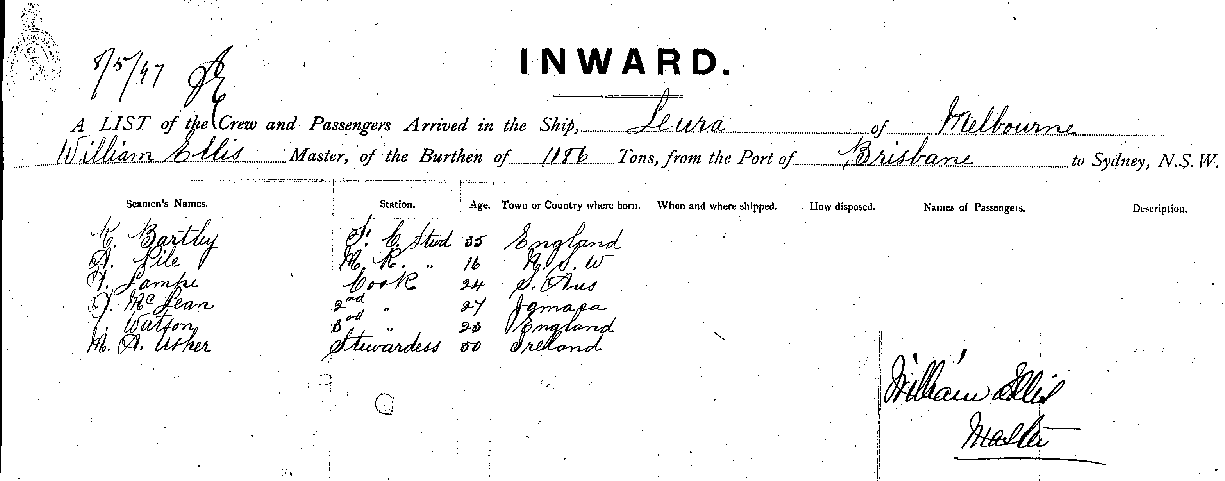 8/5/97
INWARD.
A LIST of the Crew and Passengers Arrived in the Ship, Leura of Melbourne
William Ellis Master, of the Burthen of 1186 Tons, from the Port of Brisbane to Sydney, N.S.W.
Seamen's Names. Station. Age. Town or Country where born. When and where shipped. How disposed. Names of Passengers. Description.
K. Bartley F. C. Stwd 35 England
Pile M. R. " 16 N. S. W
Lampe Cook 24 S. Aus
McLean 2nd " 27 Jamaca
Watson 3rd " 23 England
M. A. Usher Stewardess 50 Ireland
William Ellis
Master